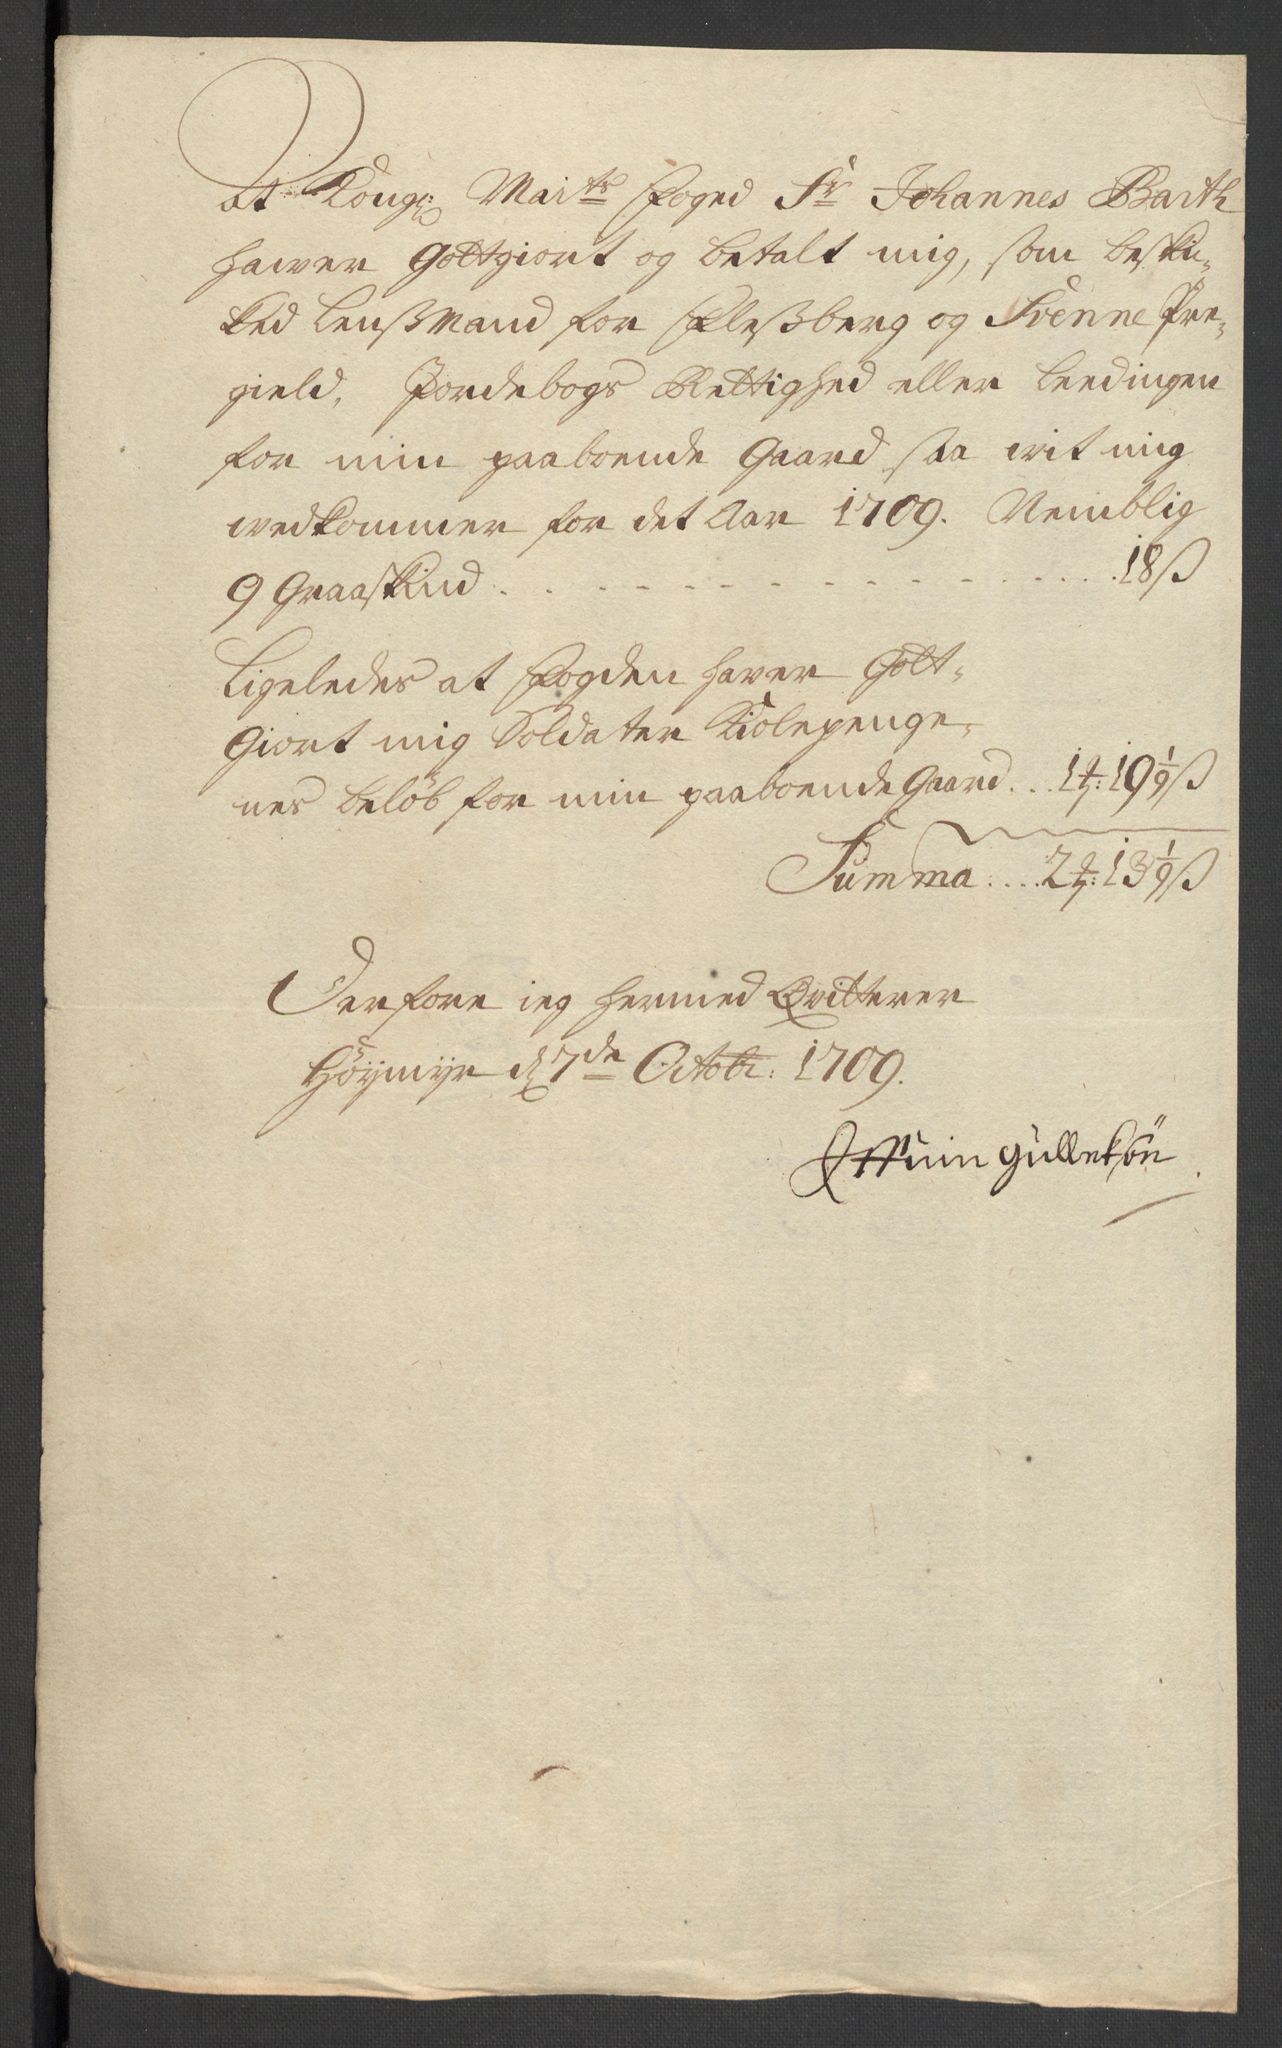 At Kongl: Mai:ts Foged Sr Johannes Barth
hawer Gottgiort og betalt mig, som beski,,
ked LenßMand for Fleßberg og Svenne Pre,,
gield, Jordebogs Rettighed eller Leedingen
for min paaboende Gaard saa wit mig
wedkommer for det Aar 1709. Nemblig
9 Graaskind . . . 18 ß
Ligeledes at Fogden haver Gott,,
Giort mig Soldater Kiolepenge,,
nes beløb for min paaboende Gaard . . . 1 19 1/9 ß
Summa . . . . 2 13 1/9 ß
Derfore ieg hermed Qvitterer
Høymyr d 7de Octobr: 1709.
Gullekßøn